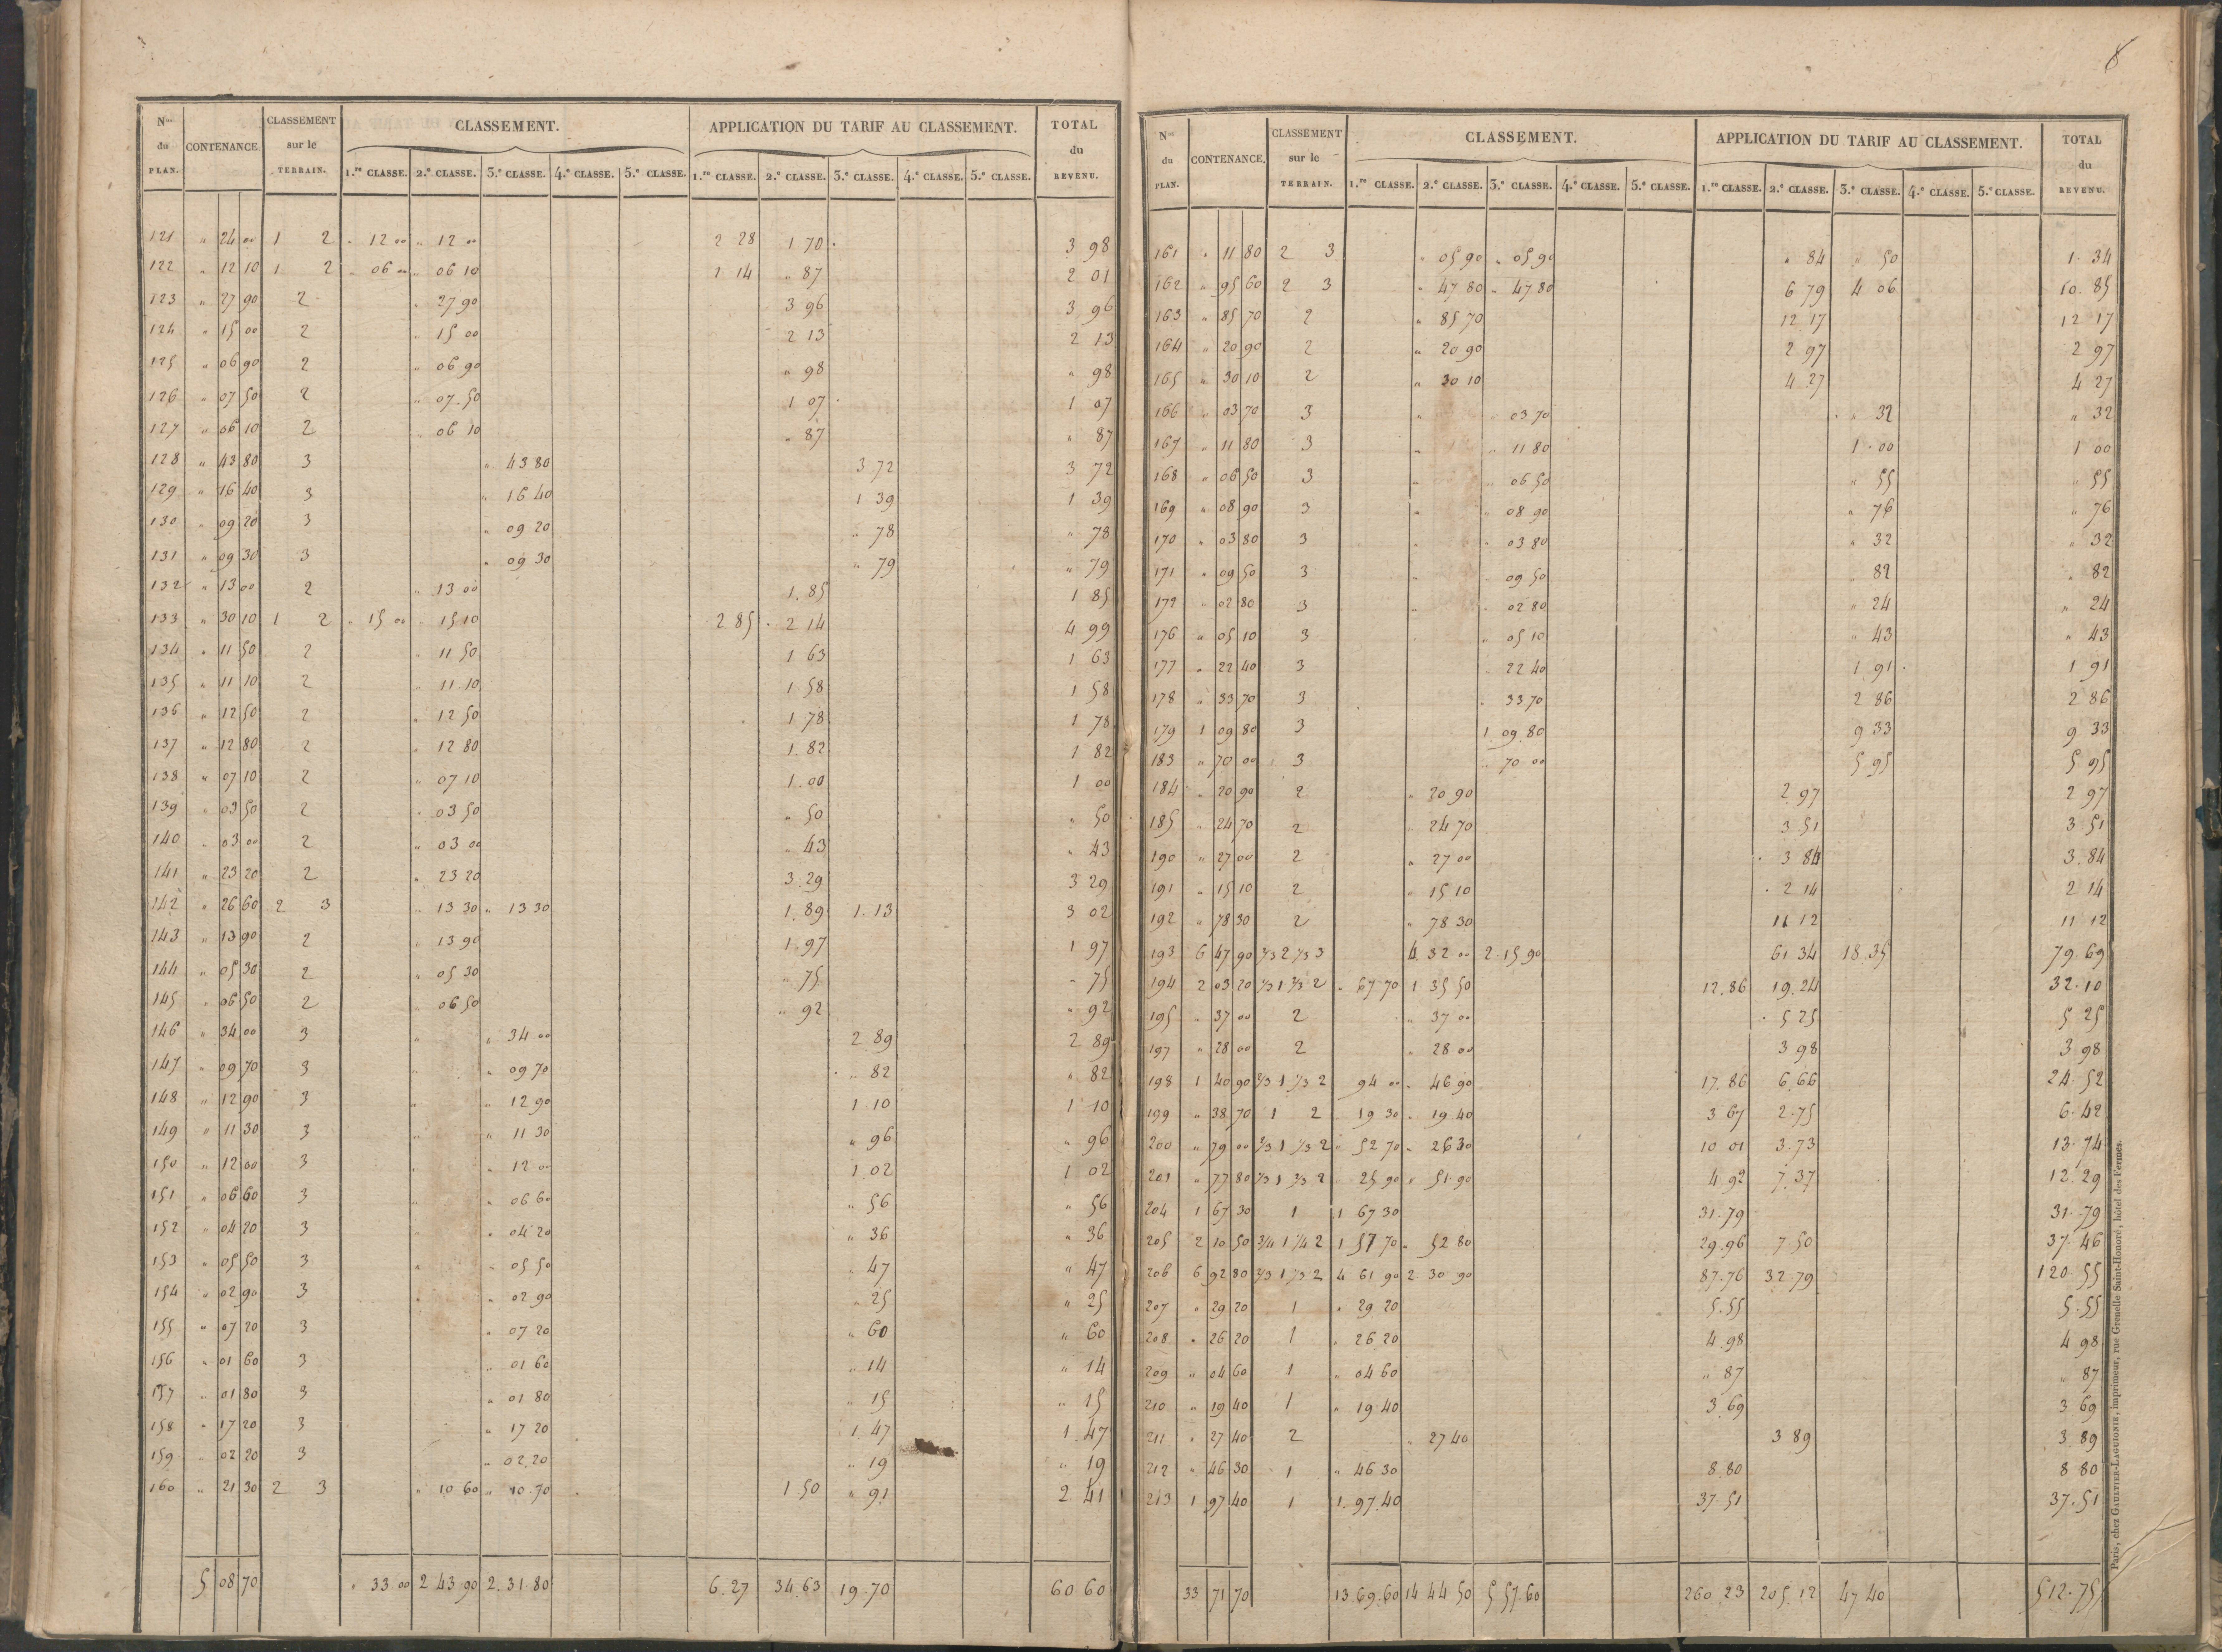 N.os du PLAN. CONTENANCE. CLASSEMENT sur le TERRAIN. CLASSEMENT. APPLICATION DU TARIF AU CLASSEMENT. TOTAL du REVENU.
1.re CLASSE. 2.e CLASSE. 3.e CLASSE. 4.e CLASSE. 5.e CLASSE. 1.re CLASSE. 2.e CLASSE. 3.e CLASSE. 4.e CLASSE. 5.e CLASSE.
121 " 24 00 1 2 " 12 00 " 12 00 2 28 1 70 3 98
122 " 12 10 1 2 " 06 00 " 06 10 1 14 " 87 2 01
123 " 27 90 2 " 27 90 3 96 3 96
124 " 15 00 2 " 15 00 2 13 2 13
125 " 06 90 2 " 06 90 " 98 " 98
126 " 07 50 2 " 07 50 1 07 1 07
127 " 06 10 2 " 06 10 " 87 " 87
128 " 43 80 3 " 43 80 3 72 3 72
129 " 16 40 3 " 16 40 1 39 1 39
130 " 09 20 3 " 09 20 " 78 " 78
131 " 09 30 3 " 09 30 " 79 " 79
132 " 13 00 2 " 13 00 1.85 1 85
133 " 30 10 1 2 " 15 00 " 15 10 2 85 2 14 4 99
134 " 11 50 2 " 11 50 1 63 1 63
135 " 11 10 2 " 11 10 1 58 1 58
136 " 12 50 2 " 12 50 1 78 1 78
137 " 12 80 2 " 12 80 1.82 1 82
138 " 07 10 2 " 07 10 1.00 1 00
139 " 03 50 2 " 03 50 " 50 " 50
140 " 03 00 2 " 03 00 " 43 " 43
141 " 23 20 2 " 23 20 3.29 3 29
142 " 26 60 2 3 " 13 30 " 13 30 1.89 1.13 3 02
143 " 13 90 2 " 13 90 1.97 1 97
144 " 05 30 2 " 05 30 " 75 " 75
145 " 06 50 2 " 06 50 " 92 " 92
146 " 34 00 3 " " 34 00 2 89 2 89
147 " 09 70 3 " " 09 70 " 82 " 82
148 " 12 90 3 " " 12 90 1 10 1 10
149 " 11 30 3 " " 11 30 " 96 " 96
150 " 12 00 3 " " 12 00 1 02 1 02
151 " 06 60 3 " " 06 60 " 56 " 56
152 " 04 20 3 " " 04 20 " 36 " 36
153 " 05 50 3 " " 05 50 " 47 " 47
154 " 02 90 3 " " 02 90 " 25 " 25
155 " 07 20 3 " 07 20 " 60 " 60
156 " 01 60 3 " 01 60 " 14 " 14
157 " 01 80 3 " 01 80 " 15 " 15
158 " 17 20 3 " 17 20 1 47 1 47
159 " 02 20 3 " 02.20 " 19 " 19
160 " 21 30 2 3 " 10 60 " 10.70 1.50 " 91 2 41
5 08 70 " 33.00 2 43 90 2.31.80 6.27 34.63 19.70 60 60
8
N.os du PLAN. CONTENANCE. CLASSEMENT sur le TERRAIN. CLASSEMENT. APPLICATION DU TARIF AU CLASSEMENT. TOTAL du REVENU.
1.re CLASSE. 2.e CLASSE. 3.e CLASSE. 4.e CLASSE. 5.e CLASSE. 1.re CLASSE. 2.e CLASSE. 3.e CLASSE. 4.e CLASSE. 5.e CLASSE.
161 " 11 80 2 3 " 05 90 " 05 90 " 84 " 50 1.34
162 " 95 60 2 3 " 47 80 " 47.80 6 79 4 06 10.85
163 " 85 70 2 " 85 70 12 17 12 17
164 " 20 90 2 " 20 90 2 97 2 97
165 " 30 10 2 " 30 10 4.27 4 27
166 " 03 70 3 " " 03.70 " 32 " 32
167 " 11 80 3 " " 11 80 1.00 1 00
168 " 06 50 3 " " 06 50 " 55 " 55
169 " 08 90 3 " " 08 90 " 76 " 76
170 " 03 80 3 " " 03 80 " 32 " 32
171 " 09 50 3 " " 09 50 " 82 " 82
172 " 02 80 3 " " 02 80 " 24 " 24
176 " 05 10 3 " 05 10 " 43 " 43
177 " 22 40 3 " 22 40 1.91 1 91
178 " 33 70 3 " 33 70 2 86 2 86
179 1 09 80 3 1.09.80 9 33 9 33
183 " 70 00 3 " 70 00 5.95 5 95
184 " 20 90 2 " 20 90 2.97 2 97
185 " 24 70 2 " 24 70 3.51 3.51
190 " 27 00 2 " 27 00 3 84 3.84
191 " 15 10 2 " 15 10 2 14 2 14
192 " 78 30 2 " 78 30 11 12 11 12
193 6 47 90 2/3 2 1/3 3 4.32 00 2.15 90 61 34 18.35 79.69
194 2 03 20 1/3 1 2/3 2 " 67 70 1 35 50 12.86 19.24 32.10
195 " 37 00 2 " 37 00 5 25 5 25
197 " 28 00 2 " 28 00 3 98 3 98
198 1 40 90 2/3 1 1/3 2 94 00 " 46 90 17.86 6.66 24.52
199 " 38 70 1 2 " 19 30 " 19 40 3 67 2.75 6.42
200 " 79 00 2/3 1 1/3 2 " 52 70 " 26 30 10 01 3.73 13.74
201 " 77 80 1/3 1 2/3 2 25 90 " 51 90 4.92 7.37 12.29
204 1 67 30 1 1 67 30 31.79 31.79
205 2 10 50 3/4 1 1/4 2 1 57 70 " 52 80 29.96 7.50 37 46
206 6 92 80 2/3 1 1/3 2 4 61 90 2 30 90 87.76 32.79 120.55
207 " 29 20 1 " 29.20 5.55 5.55
208 " 26 20 1 " 26 20 4.98 4 98
209 " 04 60 1 " 04 60 " 87 " 87
210 " 19 40 1 " 19.40 3.69 3 69
211 " 27 40 2 " 27 40 3 89 3 89
212 " 46 30 1 " 46 30 8.80 8 80
213 1 97 40 1 1.97.40 37.51 37.51
33 71 70 13.69.60 14 44 50 5 57.60 260.23 205.12 47 40 512.75
Paris, chez GAULTIER-LAGUIONIE, imprimeur, rue Grenelle Saint-Honoré, hôtel des Fermes.